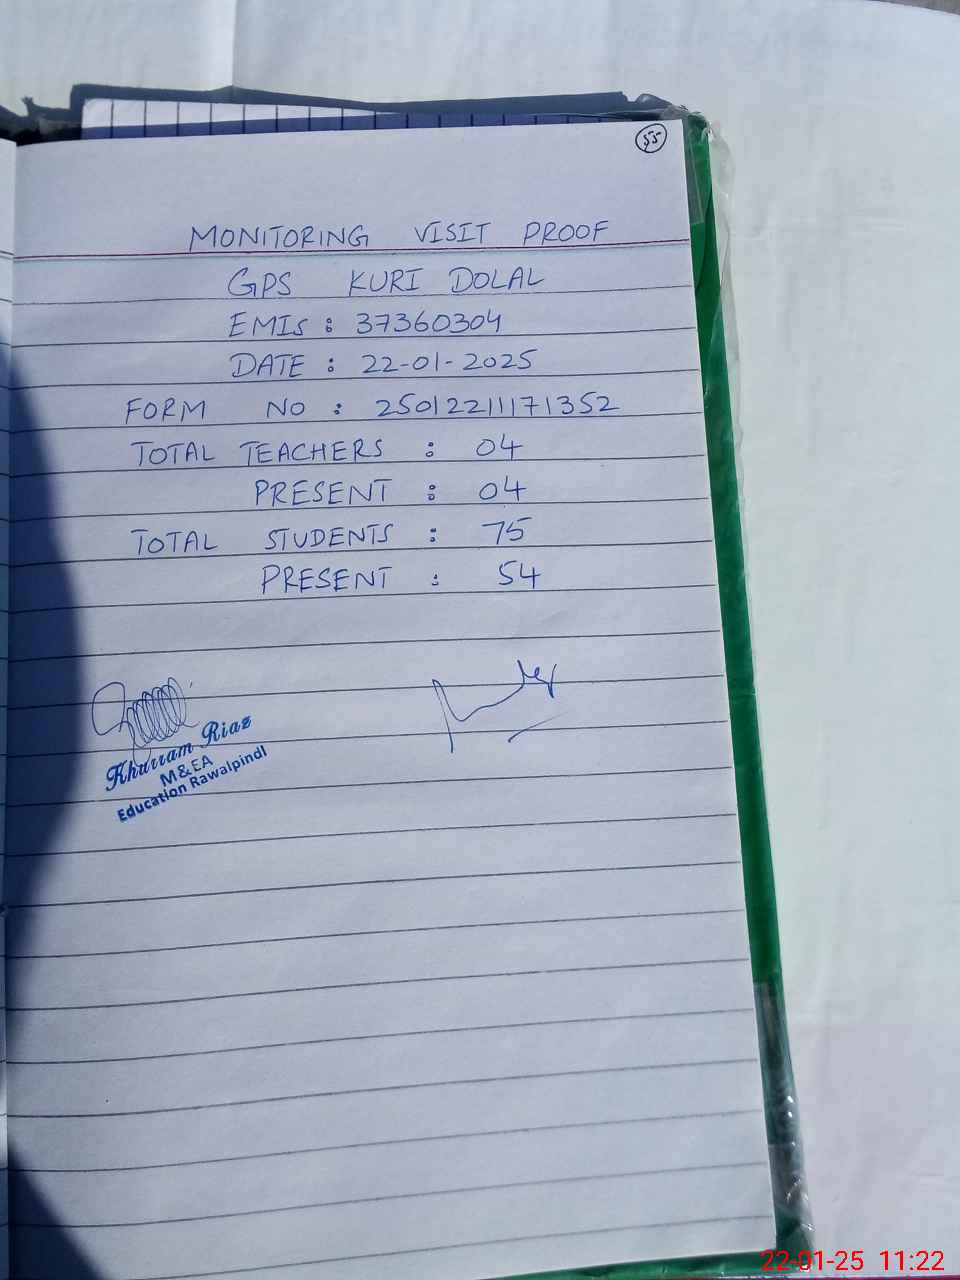 55
MONITORING VISIT PROOF
GPS KURI DOLAL
EMIS : 37360304
DATE : 22-01-2025
FORM NO : 25012211171352
TOTAL TEACHERS : 04
PRESENT : 04
TOTAL STUDENTS : 75
PRESENT : 54
Khurram Riaz
M&EA
Education Rawalpindi
22-01-25 11:22